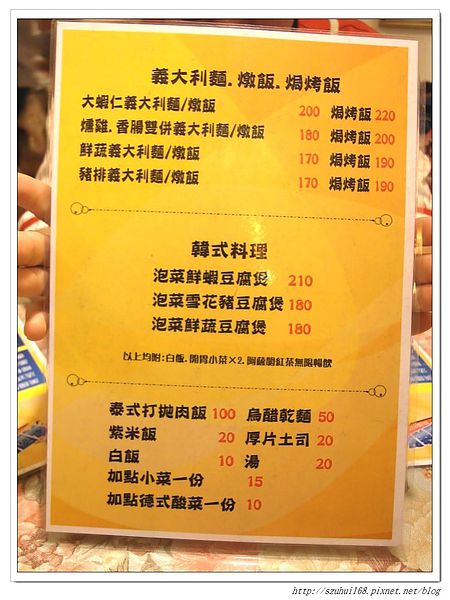 義大利麵.燉飯.焗烤飯
大蝦仁義大利麵/燉飯 200 焗烤飯 220
燻雞.香腸雙併義大利麵/燉飯 180 焗烤飯 200
鮮蔬義大利麵/燉飯 170 焗烤飯 190
豬排義大利麵/燉飯 170 焗烤飯 190
韓式料理
泡菜鮮蝦豆腐煲 210
泡菜雪花豬豆腐煲 180
泡菜鮮蔬豆腐煲 180
以上均附:白飯.開胃小菜×2.阿薩姆紅茶無限暢飲
泰式打拋肉飯 100 烏醋乾麵 50
紫米飯 20 厚片土司 20
白飯 10 湯 20
加點小菜一份 15
加點德式酸菜一份 10
http://szuhui168.pixnet.net/blog